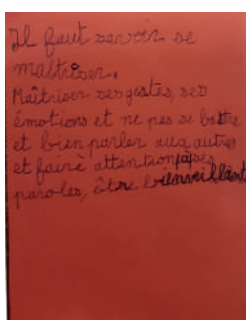 Il faut savoir se
maîtriser.
Maîtriser ses gestes, ses
émotions et ne pas se battre
et bien parler aux autres
et faire attention à ses
paroles, être bienveillant